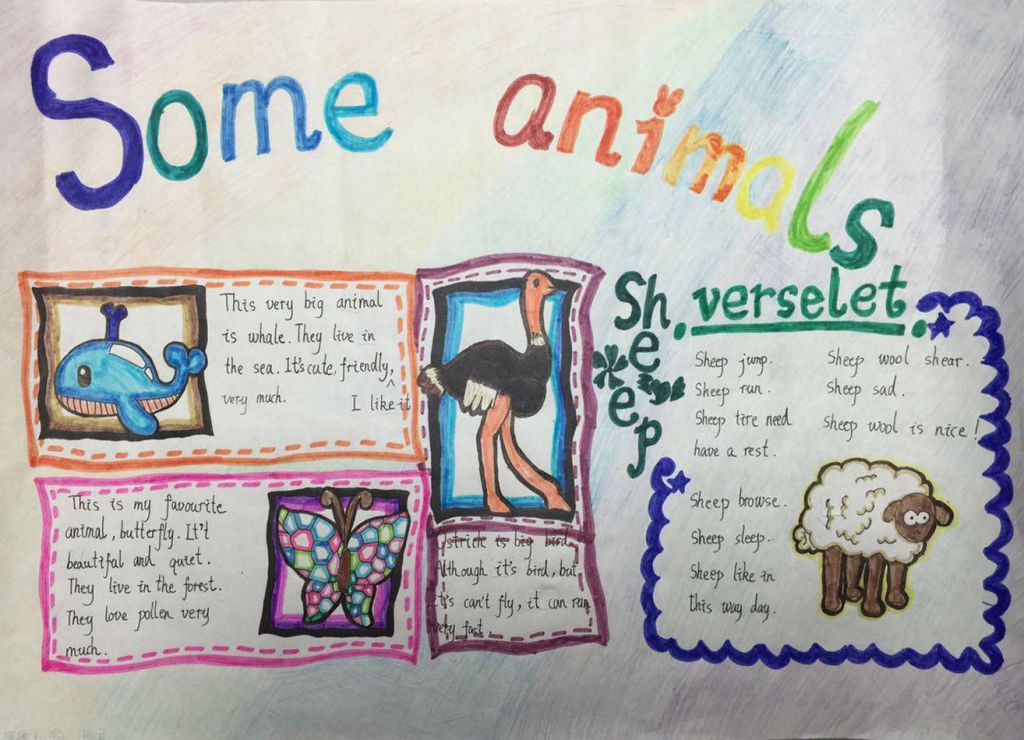 Some animals
This very big animal
is whale. They live in
the sea. It's cute, friendly,
very much.
I like it
This is my favourite
animal, butterfly. It't
beautiful and quiet.
They live in the forest.
They love pollen very
much.
Ostrich is big bird.
Although it's bird, but
it's can't fly, it can run
very fast.
Sheep verselet
Sheep jump.
Sheep run.
Sheep tire need
have a rest.
Sheep browse.
Sheep sleep.
Sheep like in
this way day.
Sheep wool shear.
Sheep sad.
Sheep wool is nice!